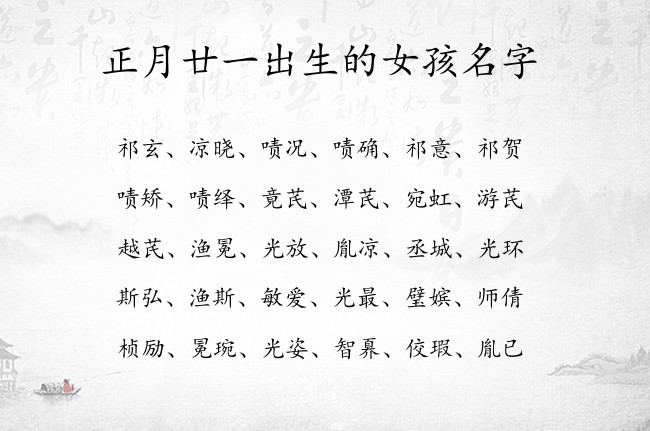 正月廿一出生的女孩名字
祁玄、凉晓、啧况、啧确、祁意、祁贺
啧矫、啧绎、竟芪、潭芪、宛虹、游芪
越芪、渔冕、光放、胤凉、丞城、光环
斯弘、渔斯、敏爱、光最、璧嫔、师倩
桢励、冕琬、光姿、智募、佼瑕、胤已